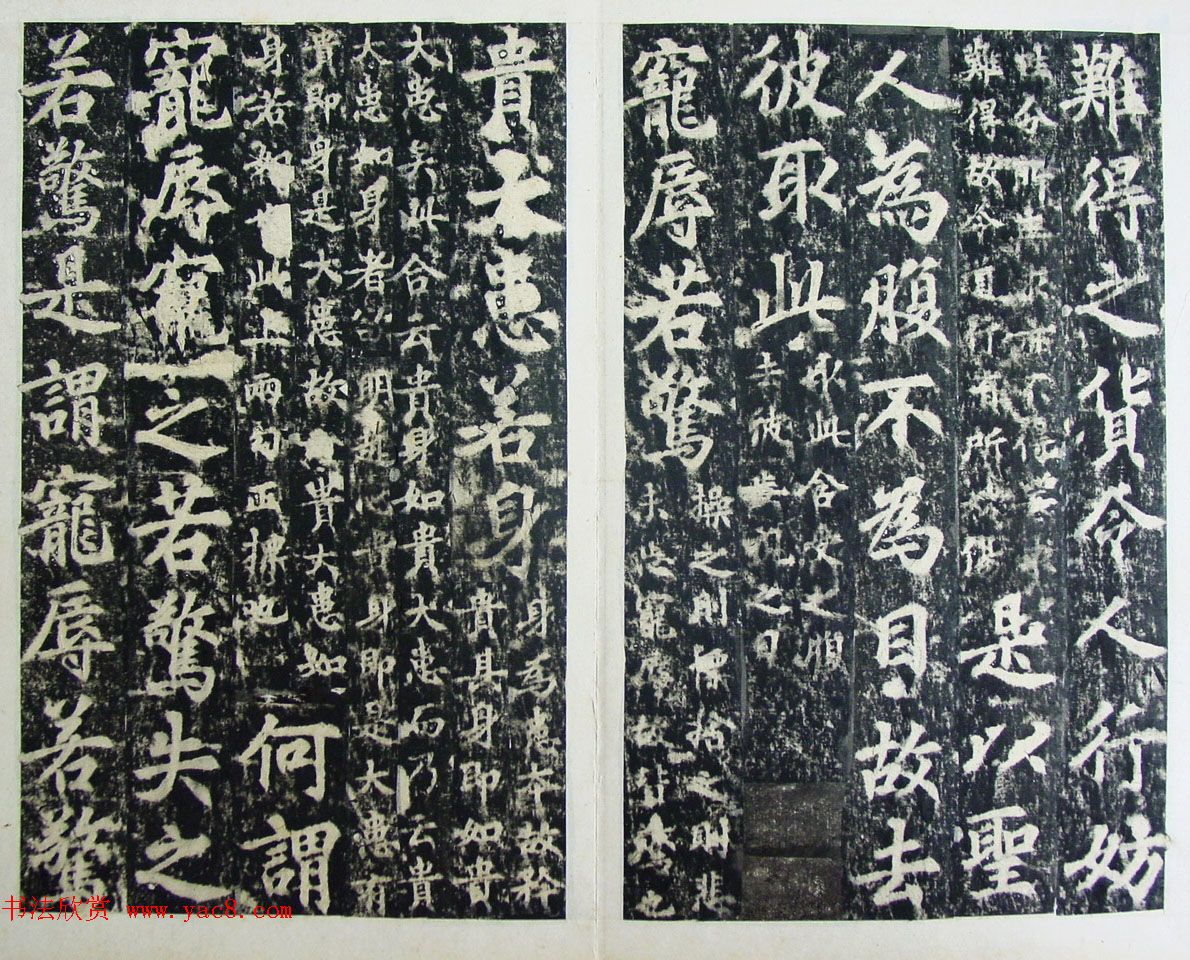 難得之貨令人行妨
分所
難得故令道行有所妨傷
是以聖
人為腹不為目故去
彼取此
取此含受之腹
去彼妄視之目
寵辱若驚
操之則慄捨之則悲
未忘寵辱故皆驚也
貴大患若身
身為患本故矜
貴其身即如貴
大患矣此合云貴身如貴大患而乃云貴
大患如身者欲明起心貴身即是大患有
貴即身是大患故貴大患如
身若如此上兩句正標也
何謂
寵辱寵之若驚失之
若驚是謂寵辱若驚
书法欣赏 www.yac8.com